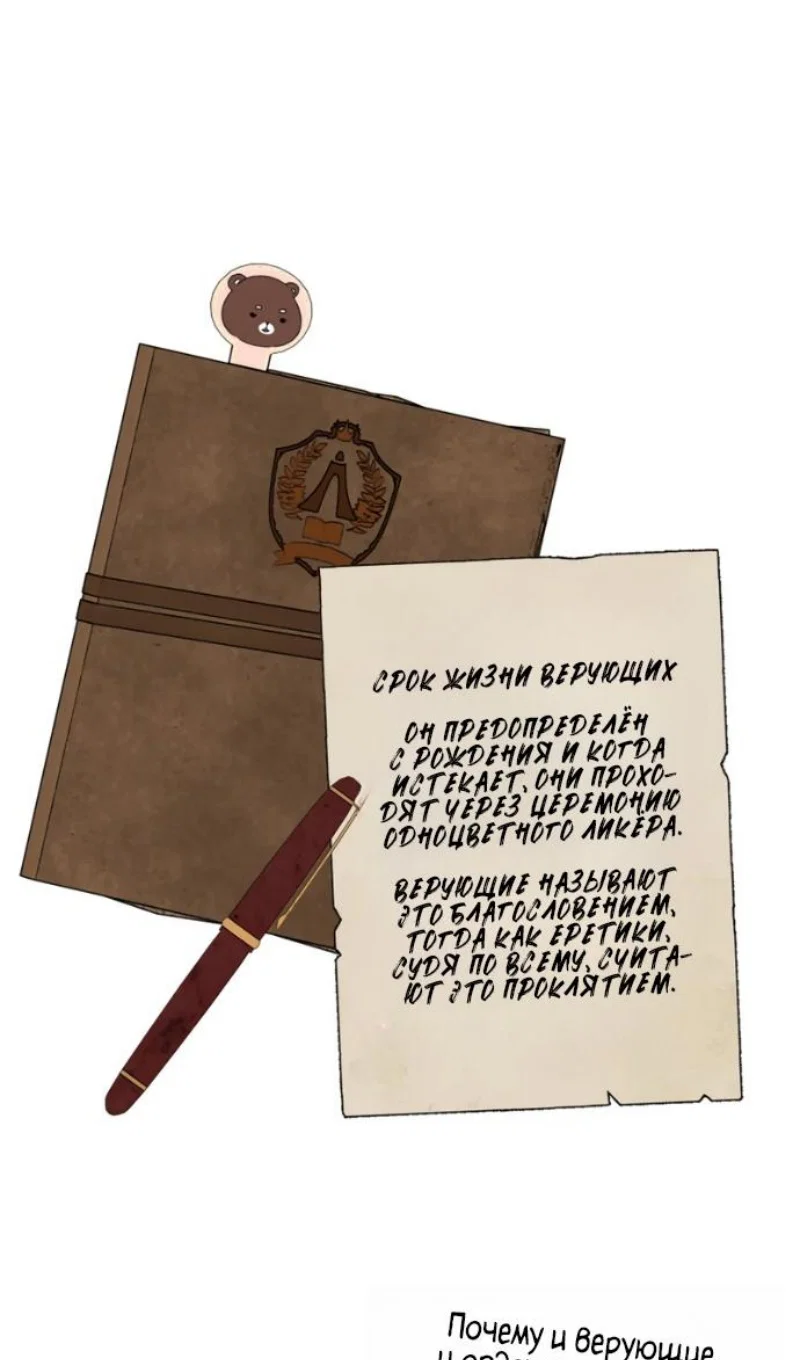 СРОК ЖИЗНИ ВЕРУЮЩИХ
ОН ПРЕДОПРЕДЕЛЁН
С РОЖДЕНИЯ И КОГДА
ИСТЕКАЕТ, ОНИ ПРОХО-
ДЯТ ЧЕРЕЗ ЦЕРЕМОНИЮ
ОДНОЦВЕТНОГО ЛИКЁРА.
ВЕРУЮЩИЕ НАЗЫВАЮТ
ЭТО БЛАГОСЛОВЕНИЕМ,
ТОГДА КАК ЕРЕТИКИ,
СУДЯ ПО ВСЕМУ, СЧИТА-
ЮТ ЭТО ПРОКЛЯТИЕМ.
Почему и верующие